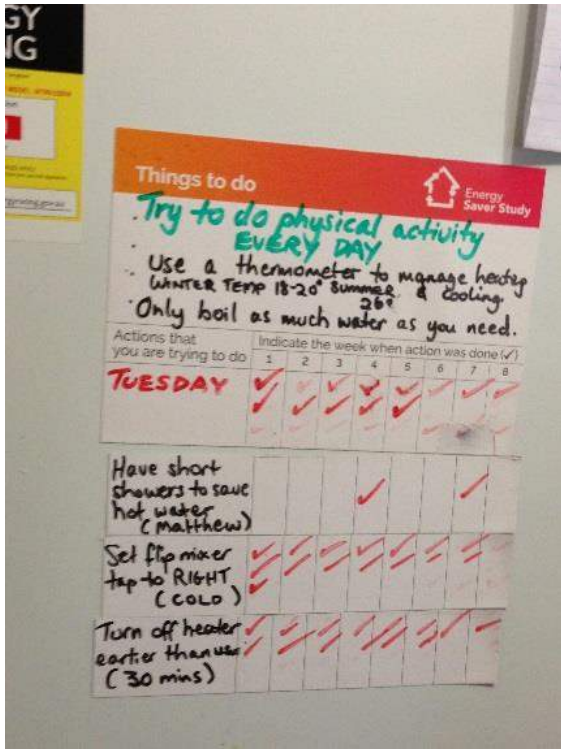 GY
NG
Things to do
Energy
Saver Study
· Try to do physical activity
EVERY DAY
· Use a thermometer to manage heating
WINTER TEMP 18-20° Summer & Cooling
26°
· Only boil as much water as you need.
Actions that
you are trying to do
Indicate the week when action was done (✓)
1 2 3 4 5 6 7 8
TUESDAY
Have short
showers to save
hot water
(Matthew)
Set flip mixer
tap to RIGHT
(COLD)
Turn off heater
earlier than
(30 mins)